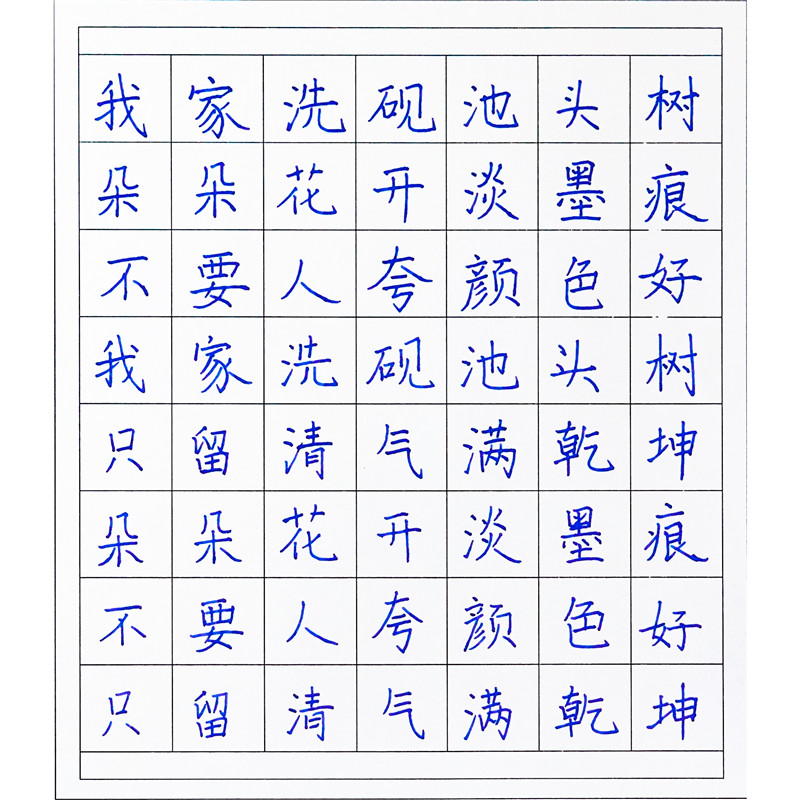 我家洗砚池头树
朵朵花开淡墨痕
不要人夸颜色好
我家洗砚池头树
只留清气满乾坤
朵朵花开淡墨痕
不要人夸颜色好
只留清气满乾坤